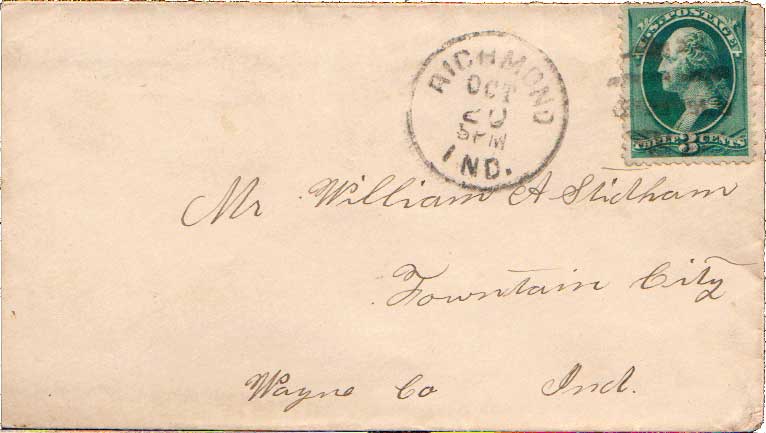 U.S. POSTAGE
THREE 3 CENTS
RICHMOND
OCT
20
5PM
IND.
Mr William A Stidham
Fountain City
Wayne Co Ind.